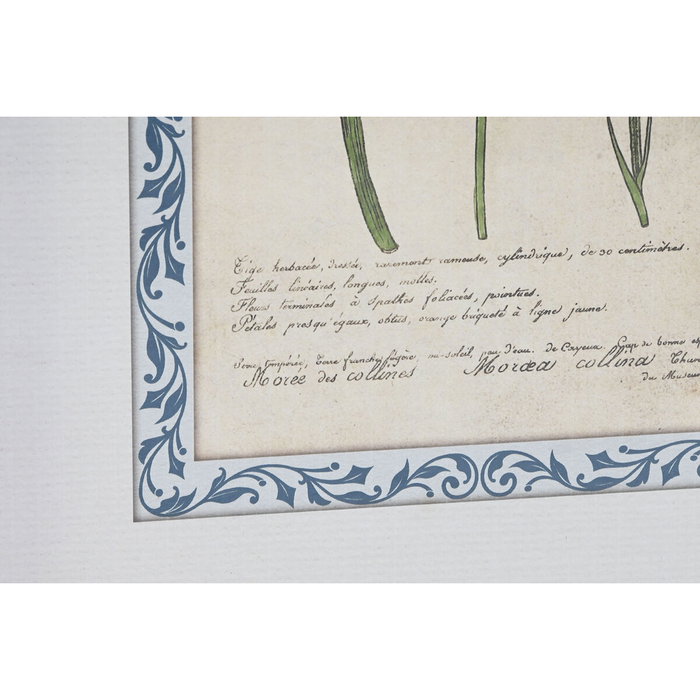 Tige herbacée, dressée, rarement rameuse, cylindrique, de 30 centimètres.
Feuilles linéaires, longues, molles.
Fleurs terminales à spathes foliacés, pointues.
Pétales presqu'égaux, obtus, orange briqueté à ligne jaune.
Serre tempérée, Terre franche légère, mi-soleil, peu d'eau. de Cayeux. Cap de bonne
Morée des collines Moræa collina Thun
du Museum